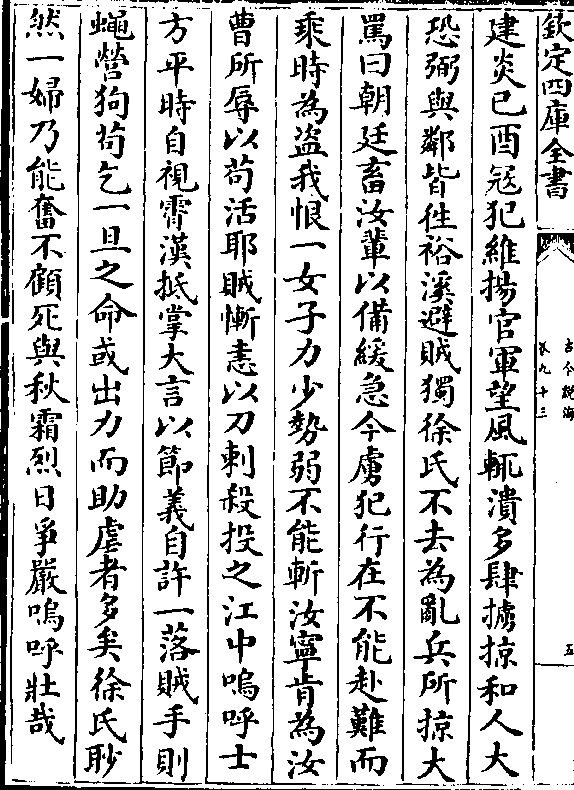 欽定四庫全書
古今說海
卷九十三
五
建炎己酉冦犯維揚官軍望風輒潰多肆擄掠和人大
恐弼與鄰皆徃裕溪避賊獨徐氏不去為亂兵所掠大
罵曰朝廷畜汝輩以備緩急今虜犯行在不能赴難而
乘時為盗我恨一女子力少勢弱不能斬汝寧肯為汝
曹所辱以苟活耶賊慚恚以刀刺殺投之江中嗚呼士
方平時自視霄漢抵掌大言以節義自許一落賊手則
蠅營狗苟乞一旦之命或出力而助虐者多矣徐氏眇
然一婦乃能奮不顧死與秋霜烈日爭嚴嗚呼壯哉